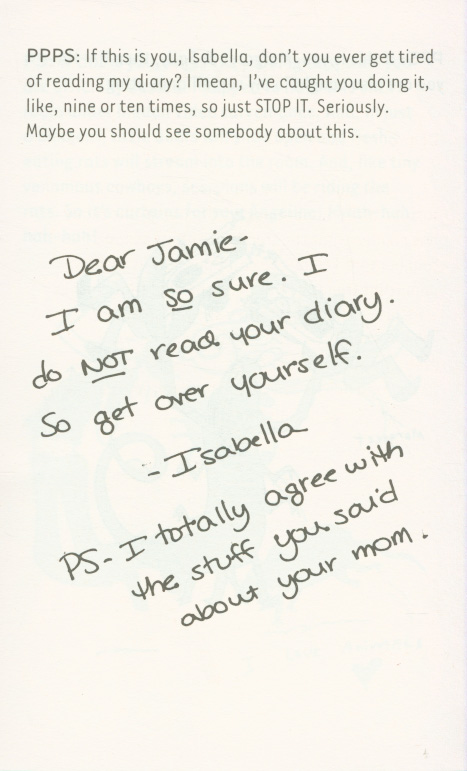 PPPS: If this is you, Isabella, don't you ever get tired
of reading my diary? I mean, I've caught you doing it,
like, nine or ten times, so just STOP IT. Seriously.
Maybe you should see somebody about this.
Dear Jamie-
I am so sure. I
do NOT read your diary.
So get over yourself.
- Isabella
PS- I totally agree with
the stuff you said
about your mom.